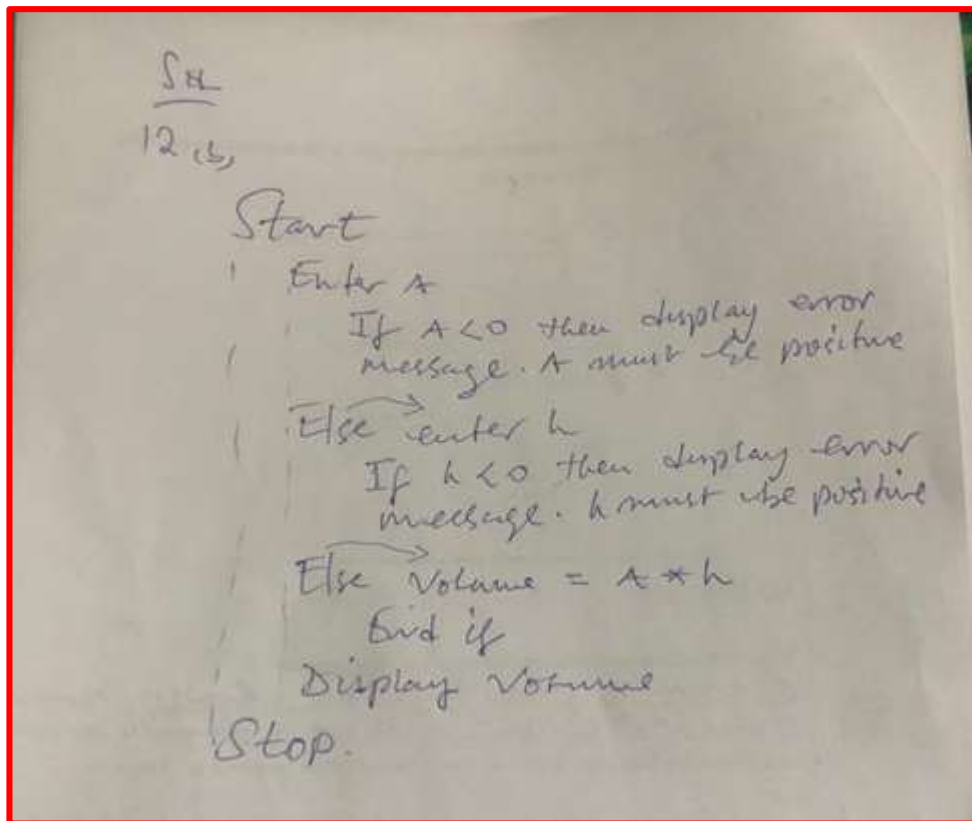 Sn
12 (b)
Start
Enter A
If A<0 then display error
message. A must be positive
Else enter h
If h<0 then display error
message. h must be positive
Else Volume = A * h
End if
Display Volume
Stop.